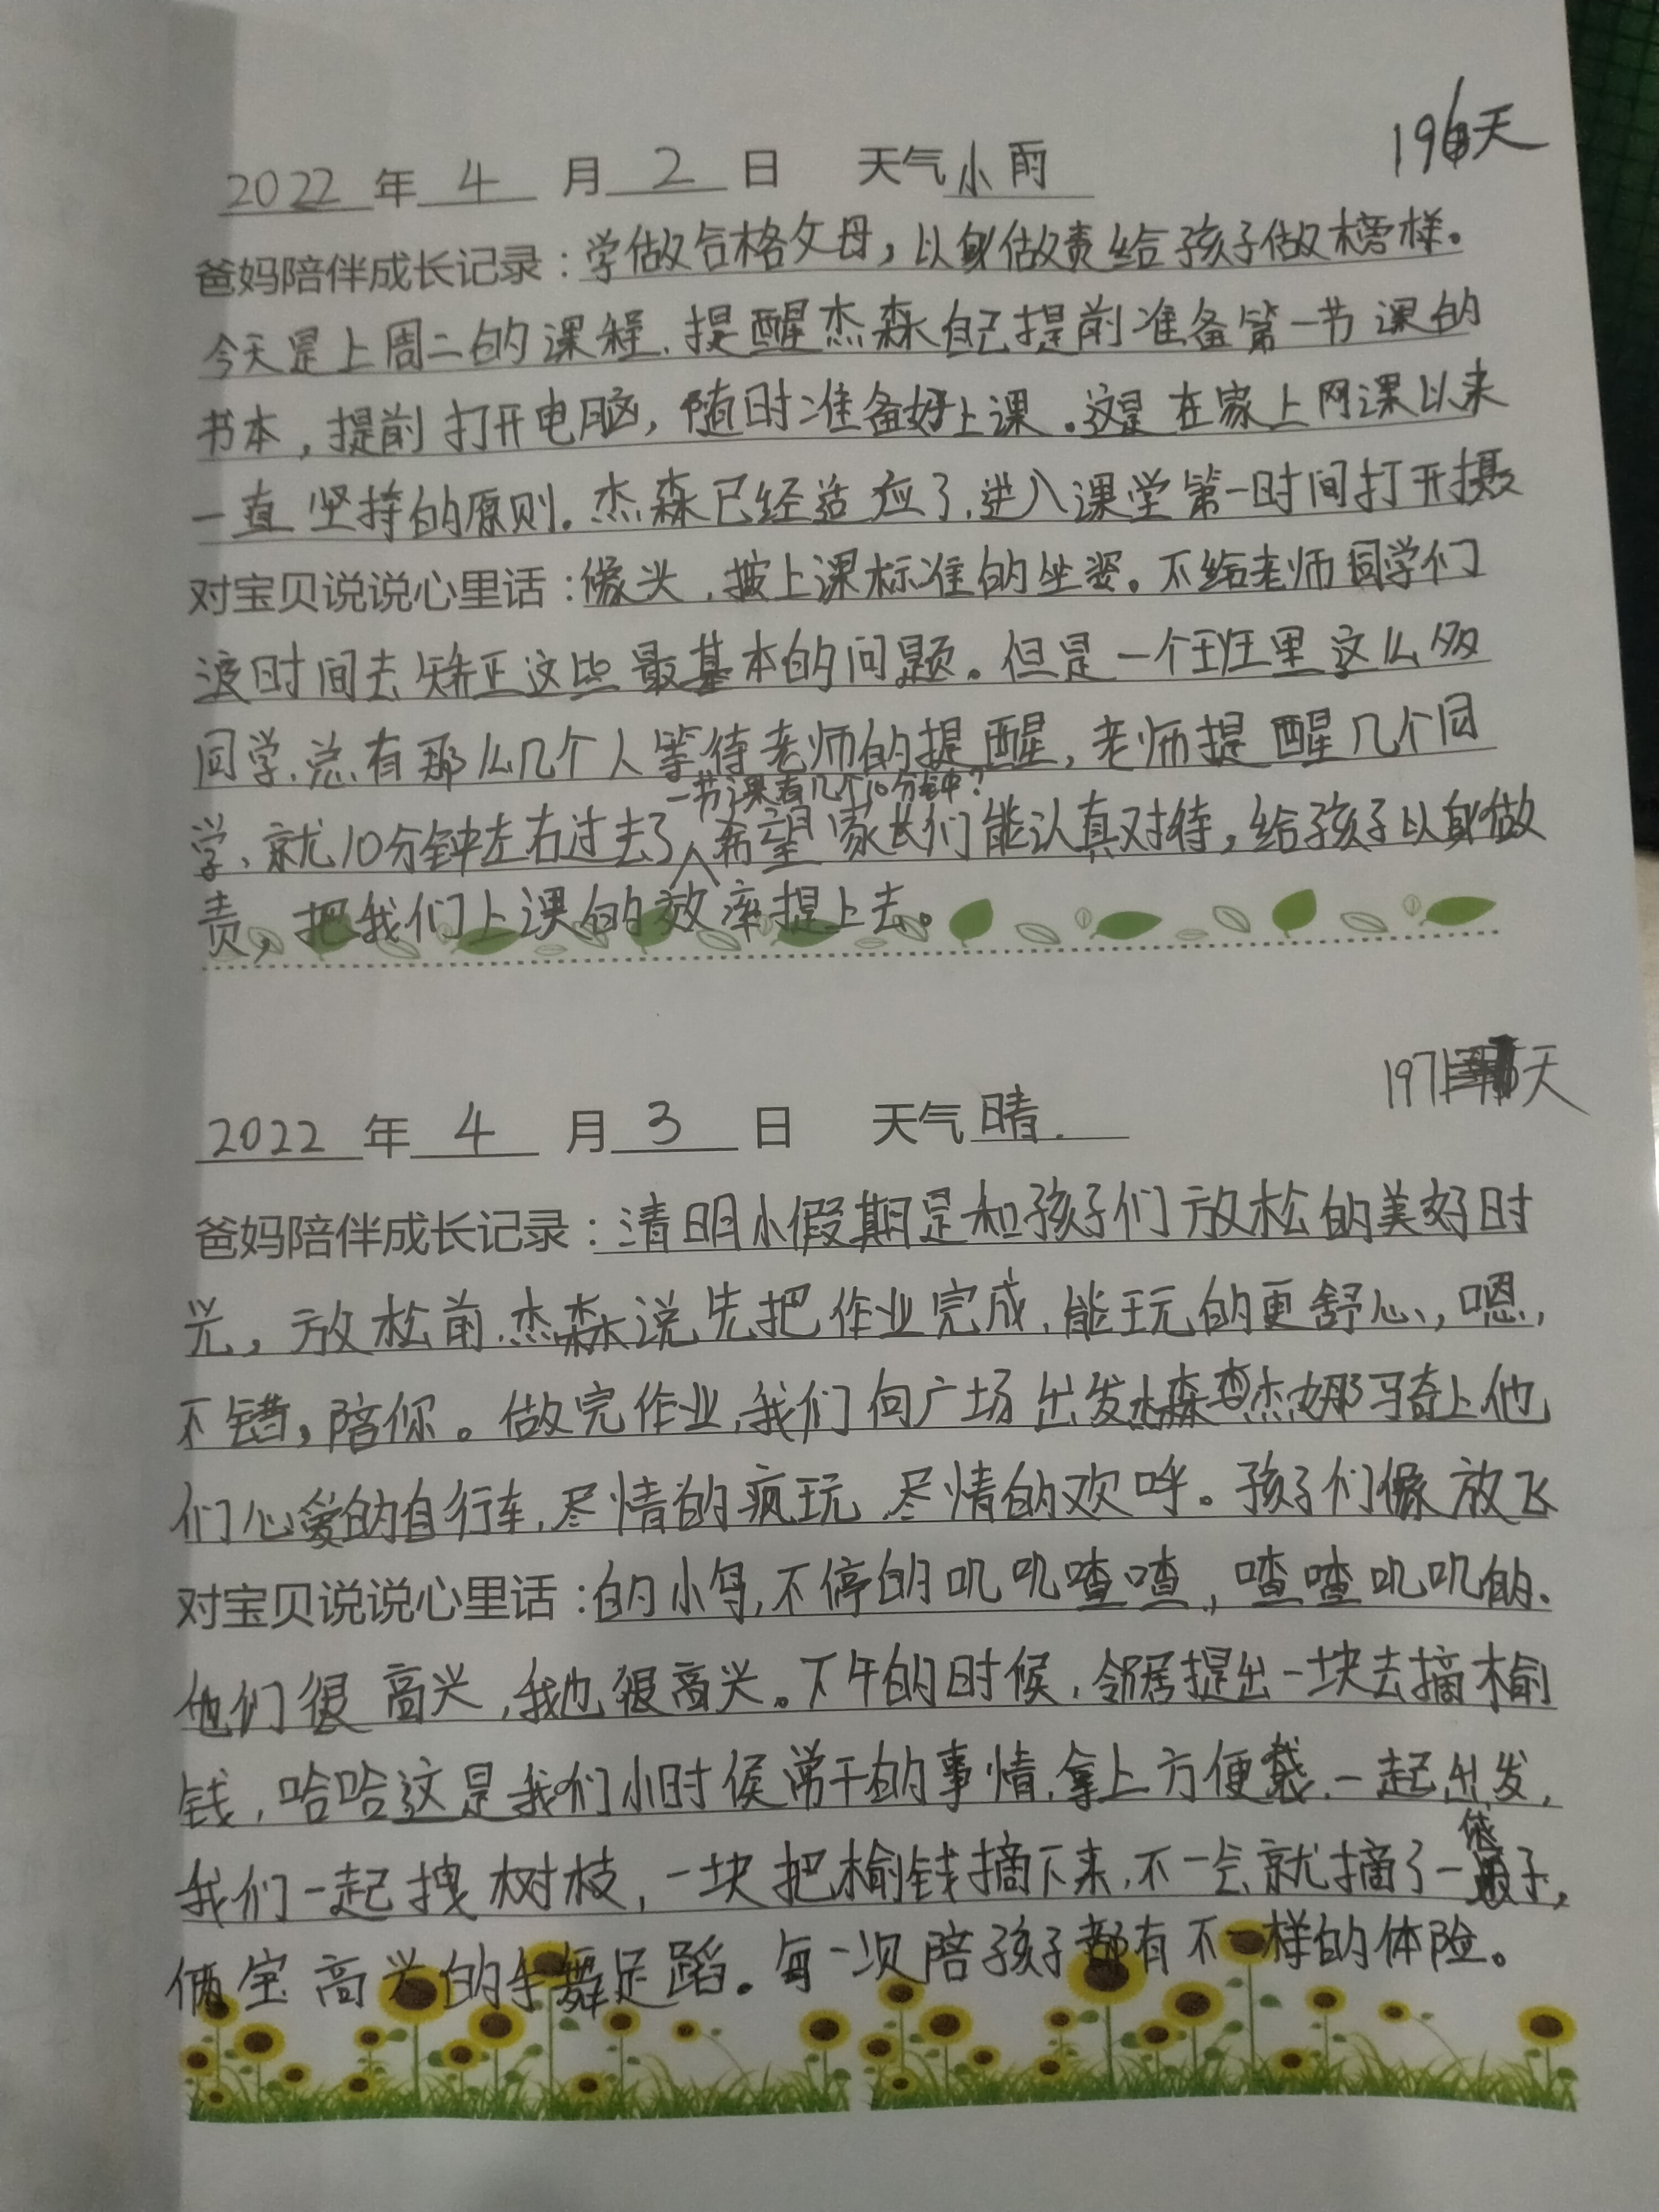 196天
2022 年 4 月 2 日 天气 小雨
爸妈陪伴成长记录：学做合格父母，以身做责给孩子做榜样。
今天是上周二的课程，提醒杰森自己提前准备第一节课的
书本，提前打开电脑，随时准备好上课。这是在家上网课以来
一直坚持的原则。杰森已经适应了，进入课堂第一时间打开摄
对宝贝说说心里话：像头，按上课标准的坐姿。不给老师同学们
时间去矫正这些最基本的问题。但是一个班里这么多
同学，总有那么几个人等待老师的提醒，老师提醒几个同
一节课有几个10分钟？
学，就10分钟左右过去了∧希望家长们能认真对待，给孩子以身做
责，把我们上课的效率提上去。
197天
2022 年 4 月 3 日 天气 晴.
爸妈陪伴成长记录：清明小假期是和孩子们放松的美好时
光，放松前，杰森说先把作业完成，能玩的更舒心，嗯，
不错，陪你。做完作业，我们向广场出发杰森杰娜骑上他
们心爱的自行车，尽情的疯玩，尽情的欢呼。孩子们像放飞
对宝贝说说心里话：的小鸟，不停的叽叽喳喳，喳喳叽叽的、
他们很高兴，我也很高兴。下午的时候，邻居提出一块去摘榆
钱，哈哈这是我们小时侯常干的事情，拿上方便袋，一起出发，
我们一起拽树枝，一块把榆钱摘下来，不一会就摘了一袋子，
俩宝高兴的手舞足蹈。每一次陪孩子都有不一样的体险。